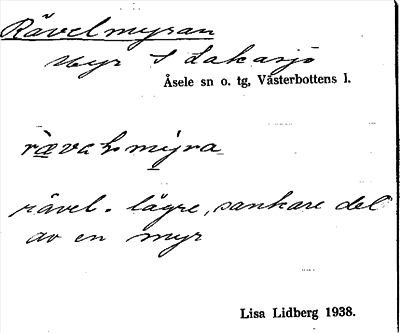 Rävelmyran
Myr S Lakasjö
Åsele sn o. tg, Västerbottens l.
myra
rävel. lägre, sankare del
av en myr
Lisa Lidberg 1938.